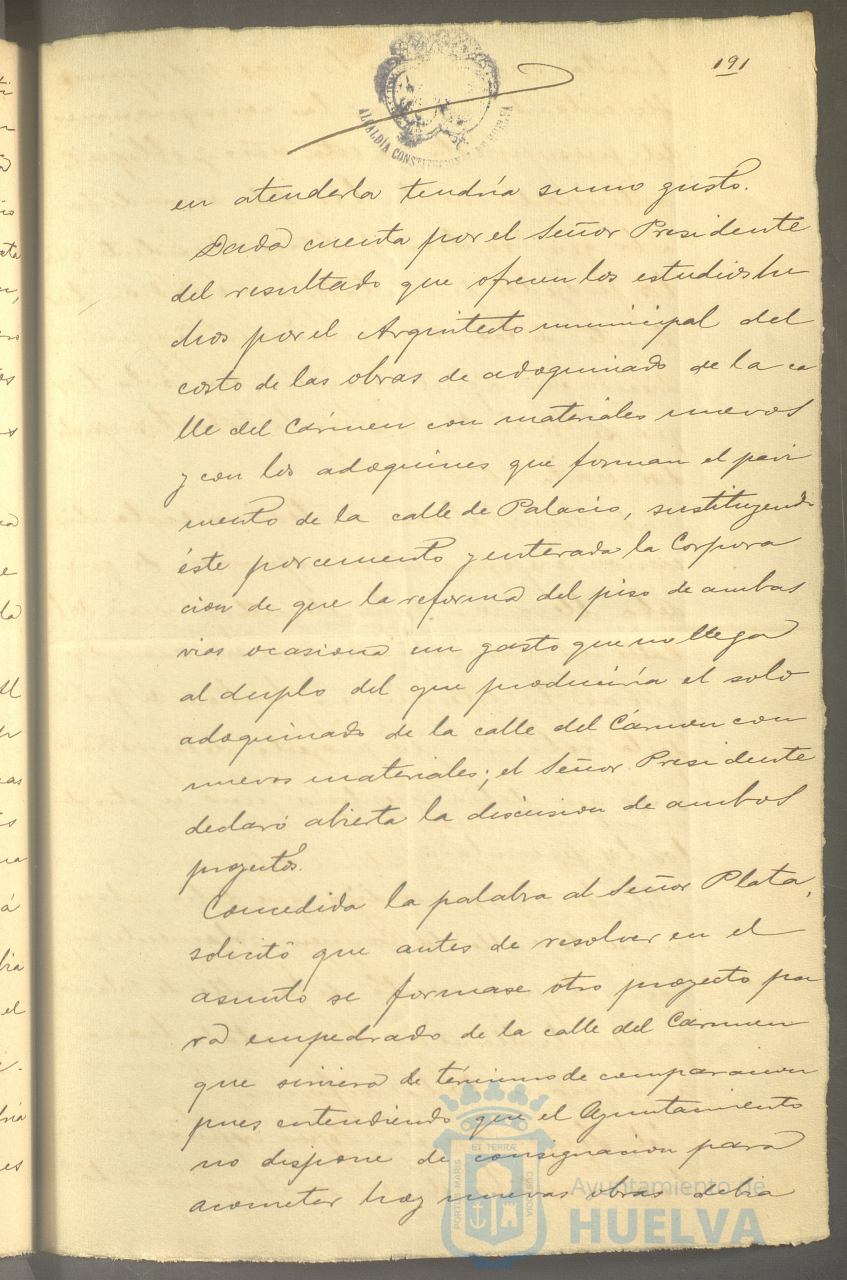 191
ALCALDÍA CONSTITUCIONAL DE HUELVA
en atenderla tendría sumo gusto.
Dada cuenta por el Señor Presidente
del resultado que ofrecen los estudios he
chos por el Arquitecto municipal del
costo de las obras de adoquinado de la ca
lle del Cármen con materiales nuevos
y con los adoquines que forman el pavi
mento de la calle de Palacio, sustituyendo
éste por cemento y enterada la Corpora
cion de que la reforma del piso de ambas
vias ocasiona un gasto que no llega
al duplo del que produciría el solo
adoquinado de la calle del Cármen con
nuevos materiales; el Señor Presidente
declaró abierta la discusion de ambos
proyectos.
Concedida la palabra al Señor Plata,
solicitó que antes de resolver en el
asunto se formase otro proyecto pa
ra empedrado de la calle del Carmen
que sirviera de término de comparacion
pues entendiendo que el Ayuntamiento
no dispone de consignacion para
acometer hoy nuevas obras debia
PORTUS MARIS
ET TERRÆ
CUSTODIA
Ayuntamiento de
HUELVA